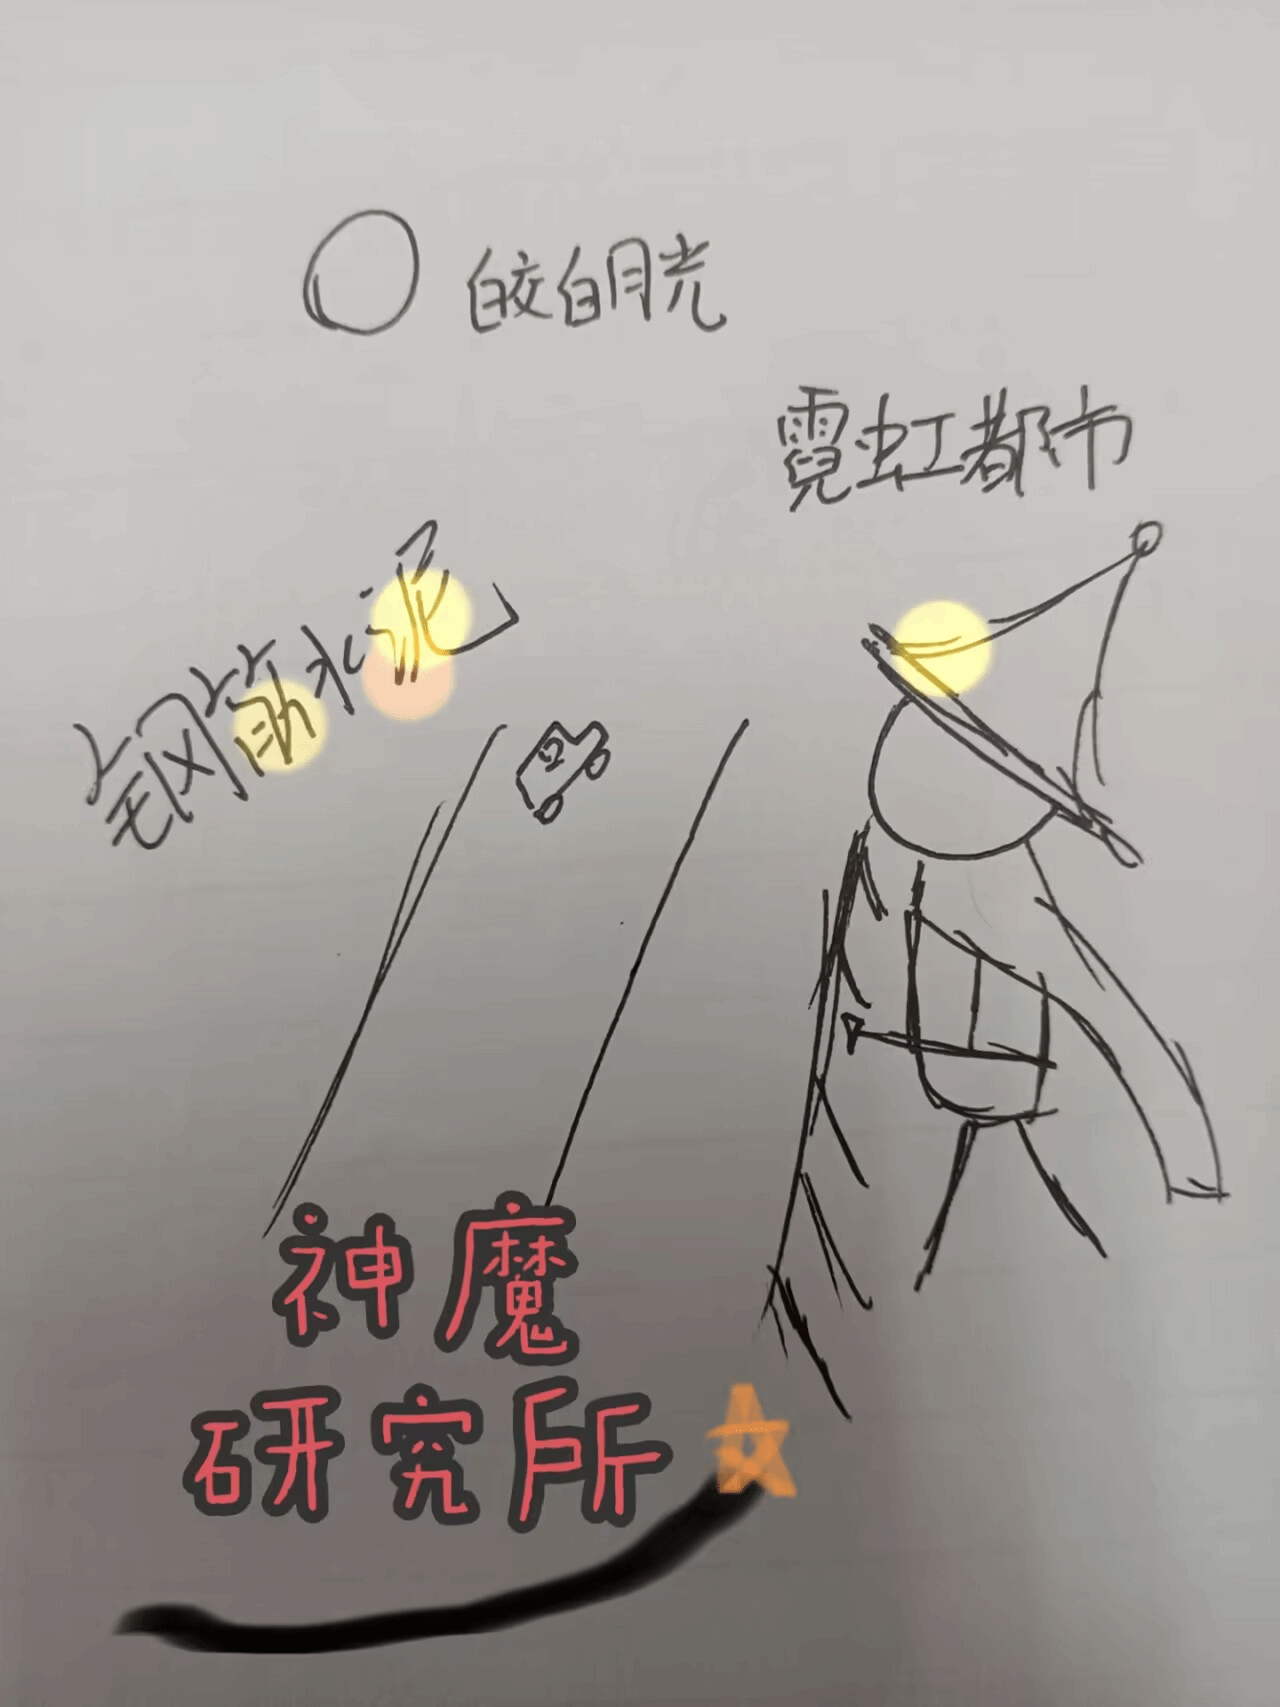 皎白月光
霓虹都市
钢筋水泥
神魔
研究所